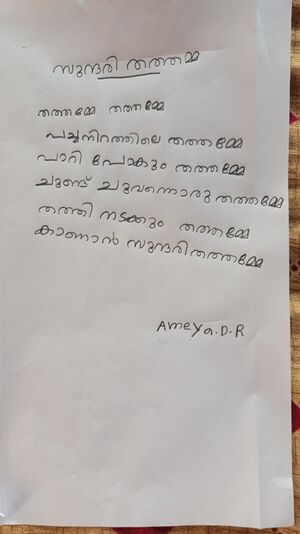 സുന്ദരി തത്തമ്മ
തത്തമ്മേ തത്തമ്മേ
പച്ചനിറത്തിലെ തത്തമ്മേ
പാറി പോകും തത്തമ്മേ
ചുണ്ട് ചുവന്നൊരു തത്തമ്മേ
തത്തി നടക്കും തത്തമ്മേ
കാണാൻ സുന്ദരിതത്തമ്മേ
Ameya.D.R